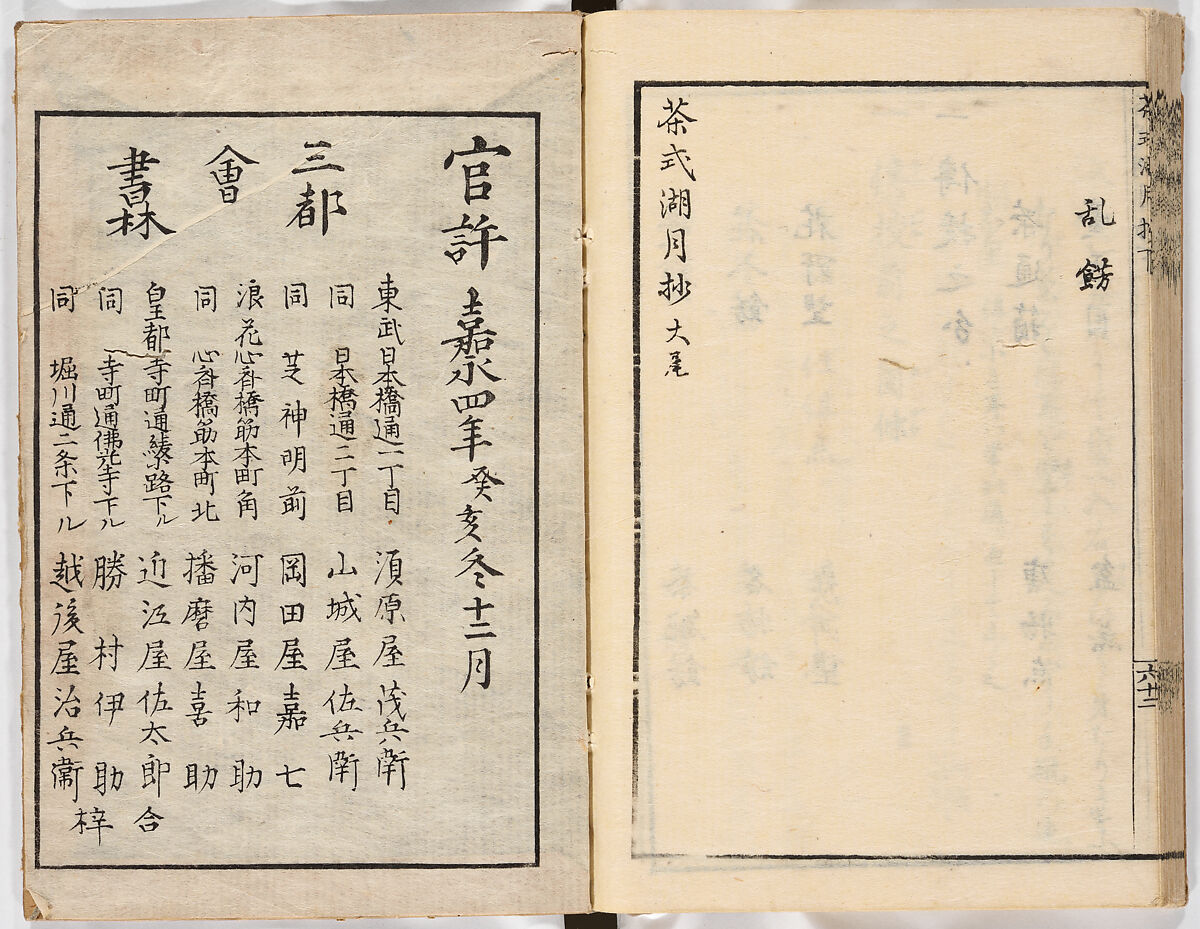 茶式湖月抄下
六十二
乱餝
茶式湖月抄大尾
官許 嘉永四年癸亥冬十二月
三都
會
書林
東武日本橋通一丁目 須原屋茂兵衛
同 日本橋通二丁目 山城屋佐兵衛
同 芝神明前 岡田屋嘉七
浪花心斎橋筋本町角 河内屋和助
同 心斎橋筋本町北 播磨屋喜助
皇都寺町通綾小路下ル 近江屋佐太郎
同 寺町通佛光寺下ル 勝村伊助
同 堀川通二条下ル 越後屋治兵衛
合
梓